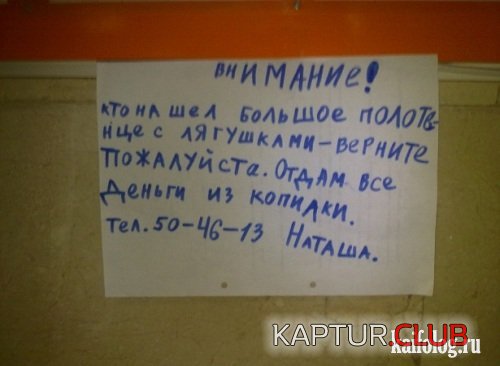 ВНИМАНИЕ!
КТО НАШЕЛ БОЛЬШОЕ ПОЛОТЕ-
НЦЕ С ЛЯГУШКАМИ-ВЕРНИТЕ
ПОЖАЛУЙСТА. ОТДАМ ВСЕ
ДЕНЬГИ ИЗ КОПИЛКИ.
ТЕЛ. 50-46-13 НАТАША.
KAPTUR.CLUB
kaifolog.ru